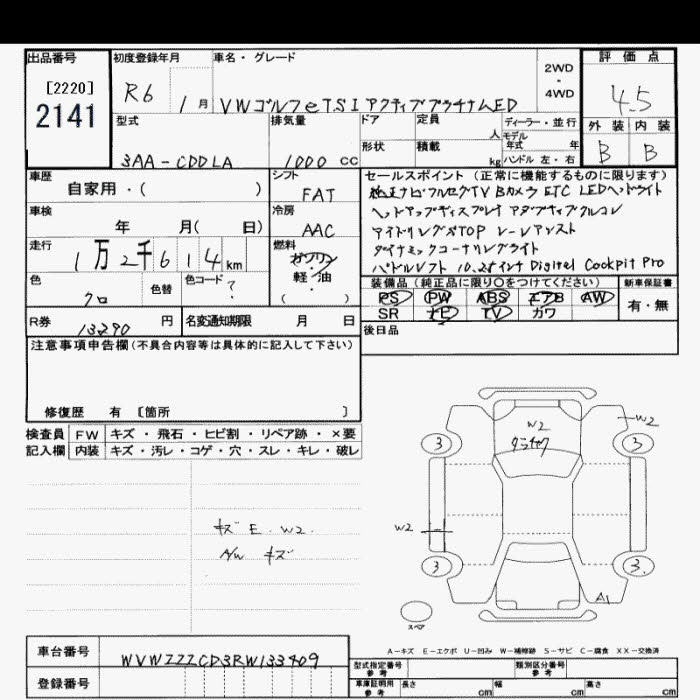 出品番号
[2220]
2141
初度登録年月
R6 1 月
車名・グレード
VWゴルフeTSIアクティブプラチナムED
2WD
・
4WD
評価点
4.5
外装 内装
B B
型式
3AA-CDDLA
排気量
1000 cc
ドア
形状
定員 人
積載 kg
ディーラー・並行
モデル
年式 年
ハンドル 左・右
車歴
自家用・( )
シフト
FAT
車検
年 月( 日)
冷房
AAC
走行
1万2千614km
燃料
ガソリン
・
軽・油
( )
色
クロ
色替
色コード
?
R券
13290 円
名変通知期限 月 日
セールスポイント(正常に機能するものに限ります)
純正ナビフルセグTV Bカメラ ETC LEDヘッドライト
ヘッドアップディスプレイ アダプティブクルコン
アイドリングSTOP レーンアシスト
ダイナミックコーナリングライト
パドルシフト 10.25インチ Digital Cockpit Pro
装備品(純正品に限り○をつけてください)
PS PW ABS エアB AW
SR ナビ TV カワ
新車保証書
有・無
後日品
注意事項申告欄(不具合内容等は具体的に記入して下さい)
修復歴 有 〔箇所 〕
検査員 FW キズ・飛石・ヒビ割・リペア跡・×要
記入欄 内装 キズ・汚レ・コゲ・穴・スレ・キレ・破レ
キズ E. W2.
A/W キズ
W2
W2
3
3
W2
3
3.
A1
スペア
A-キズ E-エクボ U-凹み W-補修跡 S-サビ C-腐食 XX-交換済
車台番号
WVWZZZCD3RW133409
登録番号
型式指定番号
参考
類別区分番号
参考
車庫証明用
参考
長さ cm 幅 cm 高さ cm